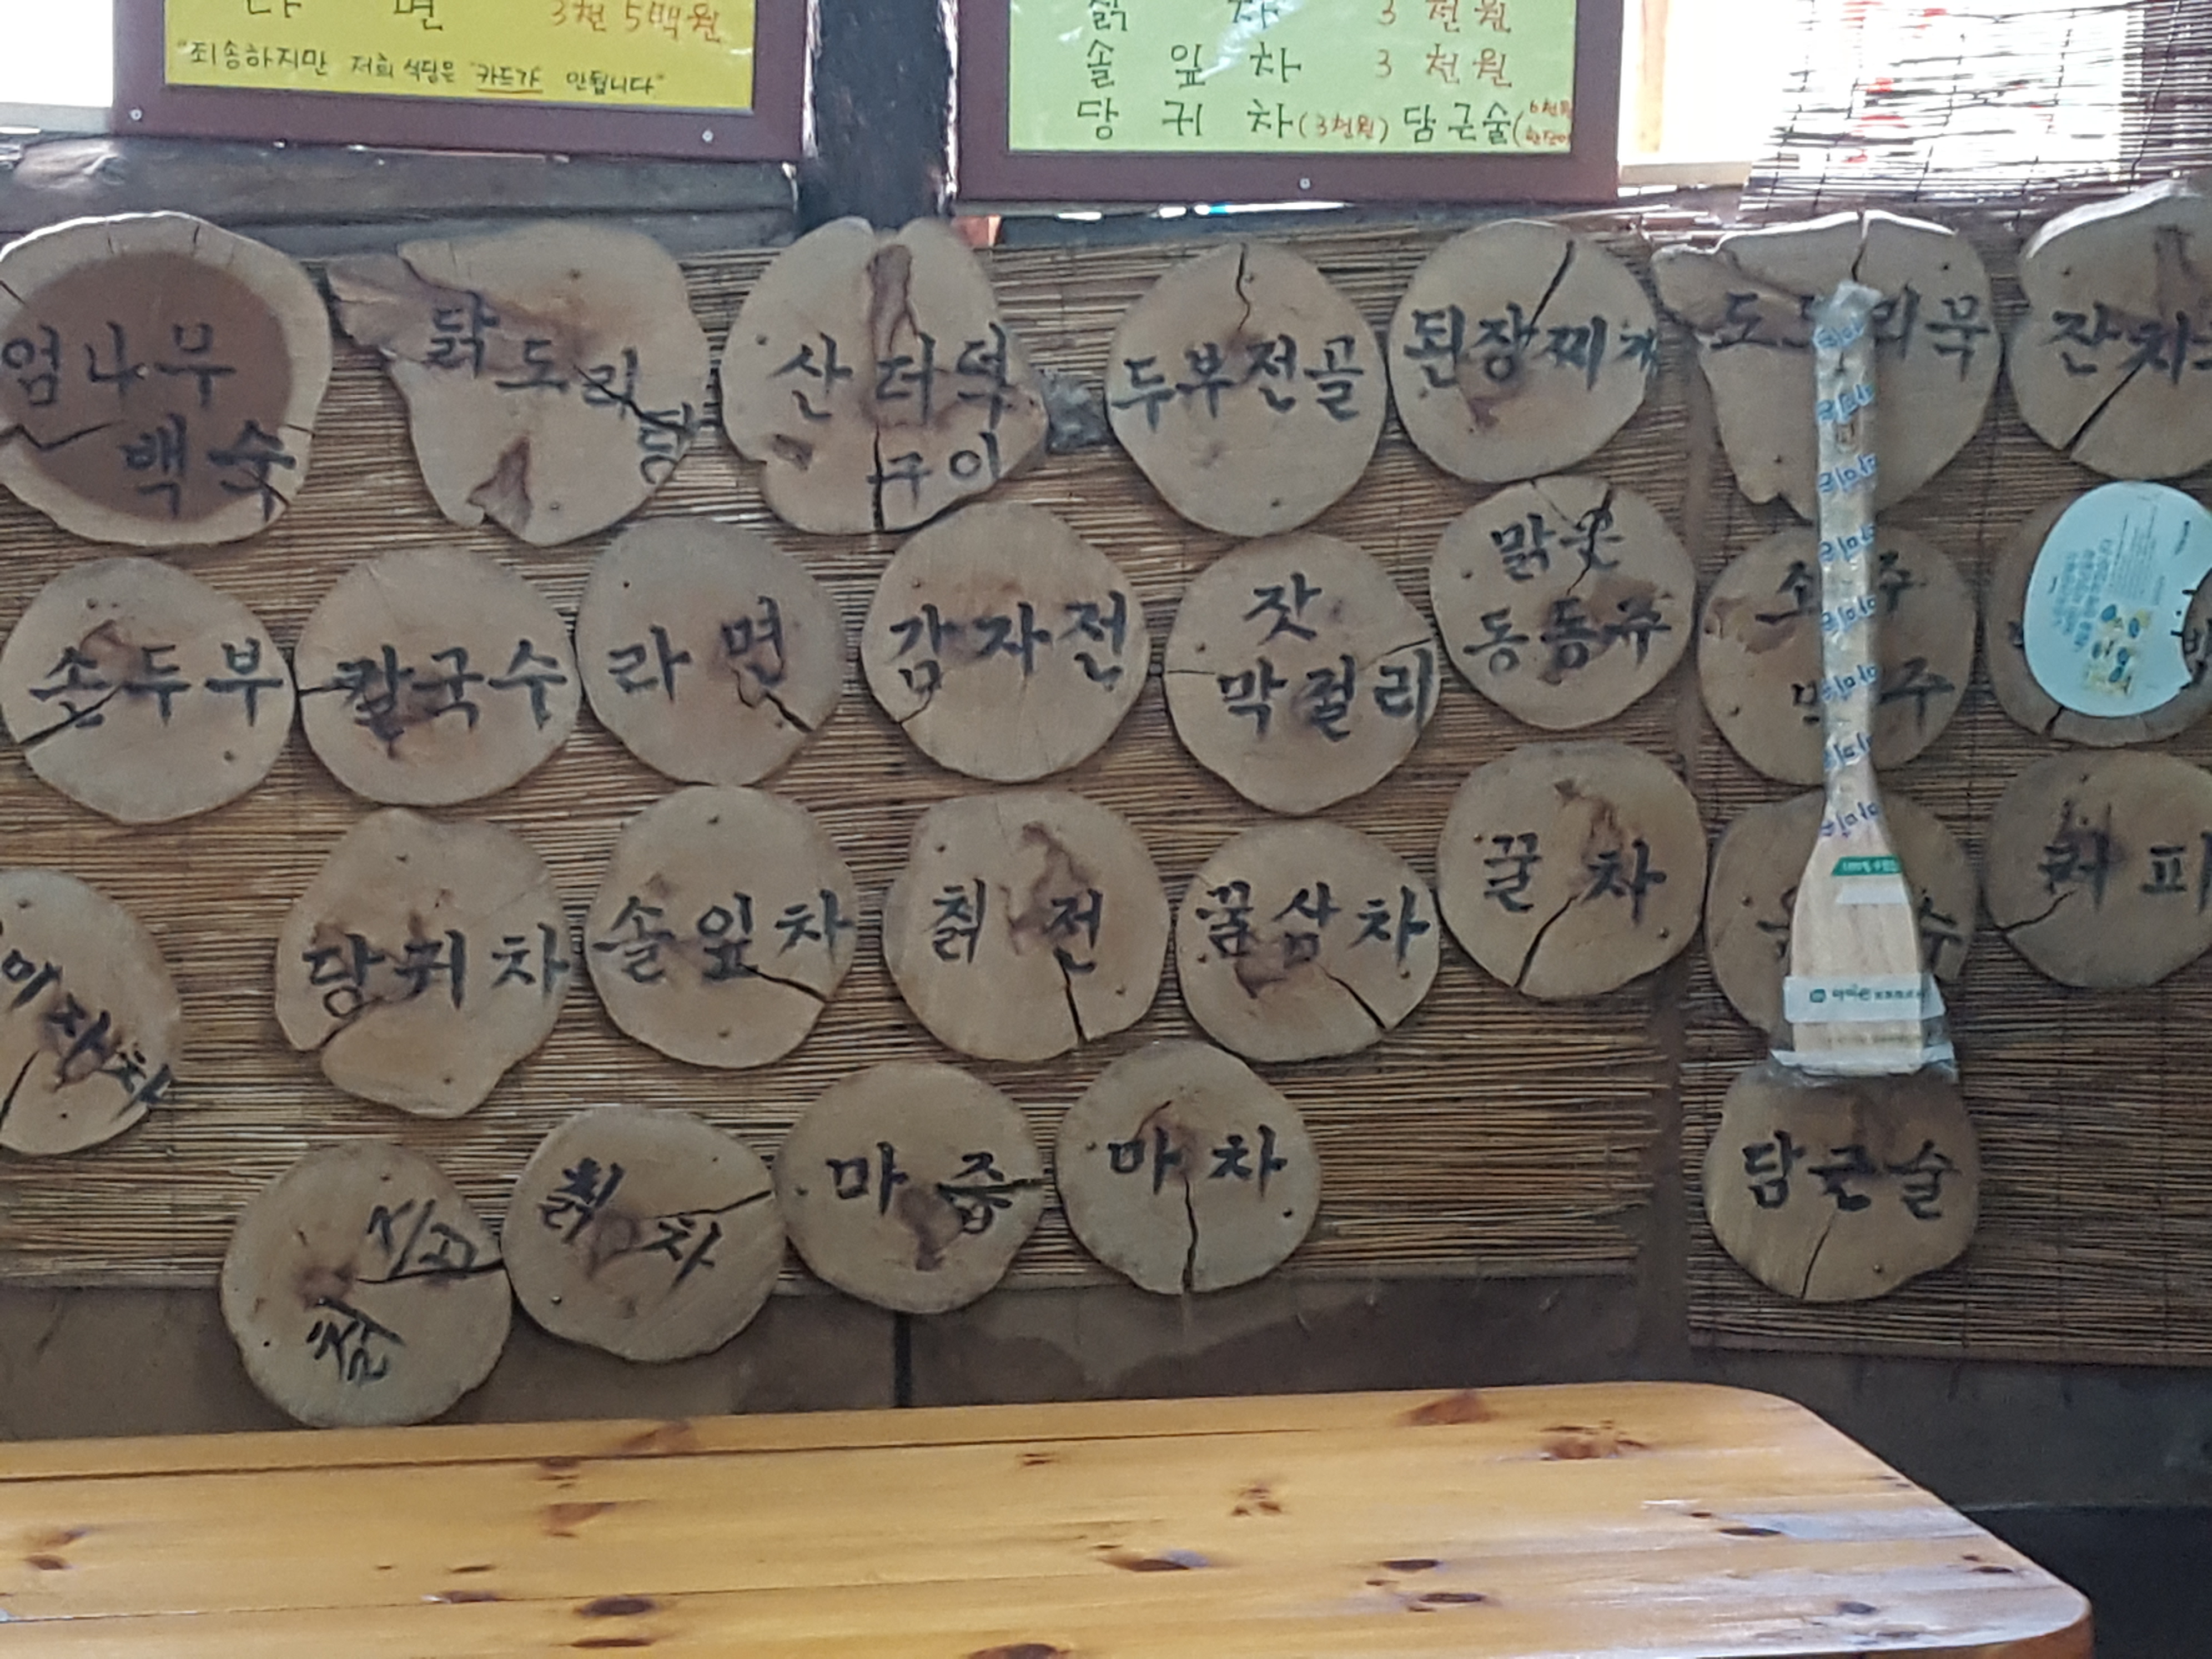 라 면 3천 5백원
"죄송하지만 저희 식당은 "카드가" 안됩니다"
칡 차 3 천원
솔 잎 차 3 천원
당 귀 차 (3천원) 담근술(6천원
엄나무
백숙
닭도리탕
산더덕
구이
두부전골
된장찌개
도토리묵
잔치
손두부
칼국수
라면
감자전
잣
막걸리
맑은
동동주
소주
맥주
당귀차
솔잎차
칡전
꿀삼차
꿀차
커피
칡
차
마즙
마차
담근술